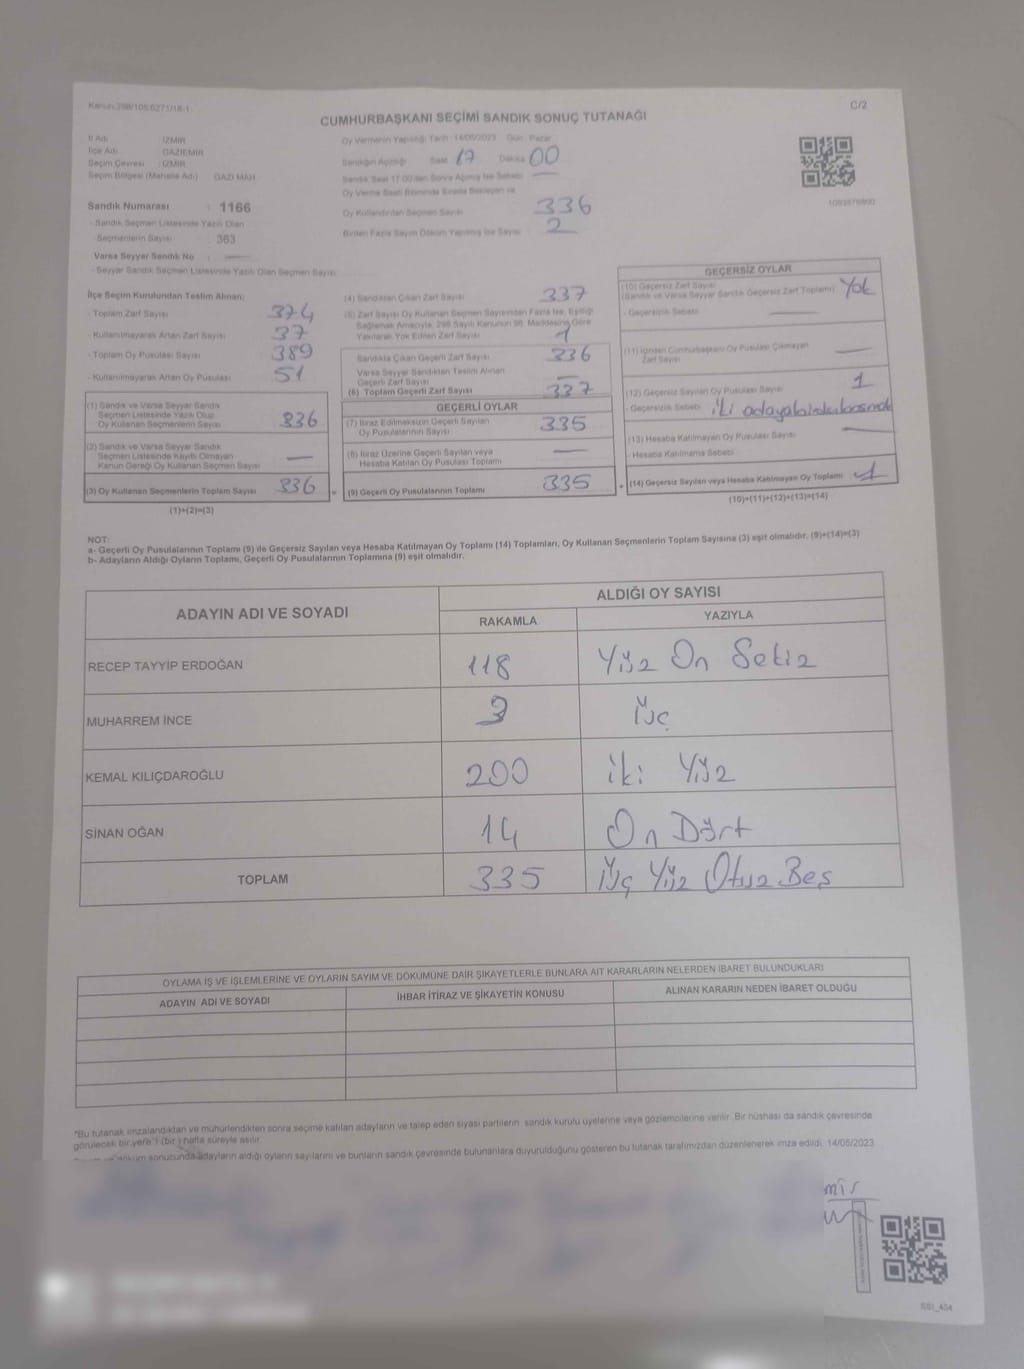 Kanun:298/105,6271/18-1
C/2
CUMHURBAŞKANI SEÇİMİ SANDIK SONUÇ TUTANAĞI
İl Adı İZMİR
İlçe Adı GAZİEMİR
Seçim Çevresi : İZMİR
Seçim Bölgesi (Mahalle Adı) GAZİ MAH.
Oy Vermenin Yapıldığı Tarih : 14/05/2023 Gün : Pazar
Sandığın Açıldığı Saat 17 Dakika 00
Sandık Saat 17:00'den Sonra Açılmış İse Sebebi
Oy Verme Saati Bitiminde Sırada Bekleyen ve
Oy Kullandırılan Seçmen Sayısı 336
Birden Fazla Sayım Döküm Yapılmış İse Sayısı 2
Sandık Numarası : 1166
- Sandık Seçmen Listesinde Yazılı Olan
Seçmenlerin Sayısı 363
Varsa Seyyar Sandık No :
- Seyyar Sandık Seçmen Listesinde Yazılı Olan Seçmen Sayısı:
İlçe Seçim Kurulundan Teslim Alınan;
- Toplam Zarf Sayısı 374
- Kullanılmayarak Artan Zarf Sayısı 37
- Toplam Oy Pusulası Sayısı 389
- Kullanılmayarak Artan Oy Pusulası 51
(1) Sandık ve Varsa Seyyar Sandık
Seçmen Listesinde Yazılı Olup
Oy Kullanan Seçmenlerin Sayısı 336
(2) Sandık ve Varsa Seyyar Sandık
Seçmen Listesinde Kayıtlı Olmayan
Kanun Gereği Oy Kullanan Seçmen Sayısı
(3) Oy Kullanan Seçmenlerin Toplam Sayısı 336
(1)+(2)=(3)
(4) Sandıktan Çıkan Zarf Sayısı 337
(5) Zarf Sayısı Oy Kullanan Seçmen Sayısından Fazla İse, Eşitliği
Sağlamak Amacıyla, 298 Sayılı Kanunun 98. Maddesine Göre
Yakılarak Yok Edilen Zarf Sayısı 1
Sandıkta Çıkan Geçerli Zarf Sayısı 336
Varsa Seyyar Sandıktan Teslim Alınan
Geçerli Zarf Sayısı
(6) Toplam Geçerli Zarf Sayısı 337
GEÇERLİ OYLAR
(7) İtiraz Edilmeksizin Geçerli Sayılan
Oy Pusulalarının Sayısı 335
(8) İtiraz Üzerine Geçerli Sayılan veya
Hesaba Katılan Oy Pusulası Toplamı
(9) Geçerli Oy Pusulalarının Toplamı 335
GEÇERSİZ OYLAR
(10) Geçersiz Zarf Sayısı
(Sandık ve Varsa Seyyar Sandık Geçersiz Zarf Toplamı) Yok
- Geçersizlik Sebebi
(11) İçinden Cumhurbaşkanı Oy Pusulası Çıkmayan
Zarf Sayısı
(12) Geçersiz Sayılan Oy Pusulası Sayısı 1
- Geçersizlik Sebebi İki adaya
(13) Hesaba Katılmayan Oy Pusulası Sayısı
- Hesaba Katılmama Sebebi
(14) Geçersiz Sayılan veya Hesaba Katılmayan Oy Toplamı 1
(10)+(11)+(12)+(13)=(14)
NOT:
a- Geçerli Oy Pusulalarının Toplamı (9) ile Geçersiz Sayılan veya Hesaba Katılmayan Oy Toplamı (14) Toplamları, Oy Kullanan Seçmenlerin Toplam Sayısına (3) eşit olmalıdır. (9)+(14)=(3)
b- Adayların Aldığı Oyların Toplamı, Geçerli Oy Pusulalarının Toplamına (9) eşit olmalıdır.
ADAYIN ADI VE SOYADI
ALDIĞI OY SAYISI
RAKAMLA YAZIYLA
RECEP TAYYİP ERDOĞAN 118 Yüz On Sekiz
MUHARREM İNCE 3 Üç
KEMAL KILIÇDAROĞLU 200 İki Yüz
SİNAN OĞAN 14 On Dört
TOPLAM 335 Üç Yüz Otuz Beş
OYLAMA İŞ VE İŞLEMLERİNE VE OYLARIN SAYIM VE DÖKÜMÜNE DAİR ŞİKAYETLERLE BUNLARA AİT KARARLARIN NELERDEN İBARET BULUNDUKLARI
ADAYIN ADI VE SOYADI İHBAR İTİRAZ VE ŞİKAYETİN KONUSU ALINAN KARARIN NEDEN İBARET OLDUĞU
*Bu tutanak imzalandıktan ve mühürlendikten sonra seçime katılan adayların ve talep eden siyasi partilerin sandık kurulu üyelerine veya gözlemcilerine verilir. Bir nüshası da sandık çevresinde
görülecek bir yere 1 (bir ) hafta süreyle asılır.
sonucunda adayların aldığı oyların sayılarını ve bunların sandık çevresinde bulunanlara duyurulduğunu gösteren bu tutanak tarafımızdan düzenlenerek imza edildi. 14/05/2023